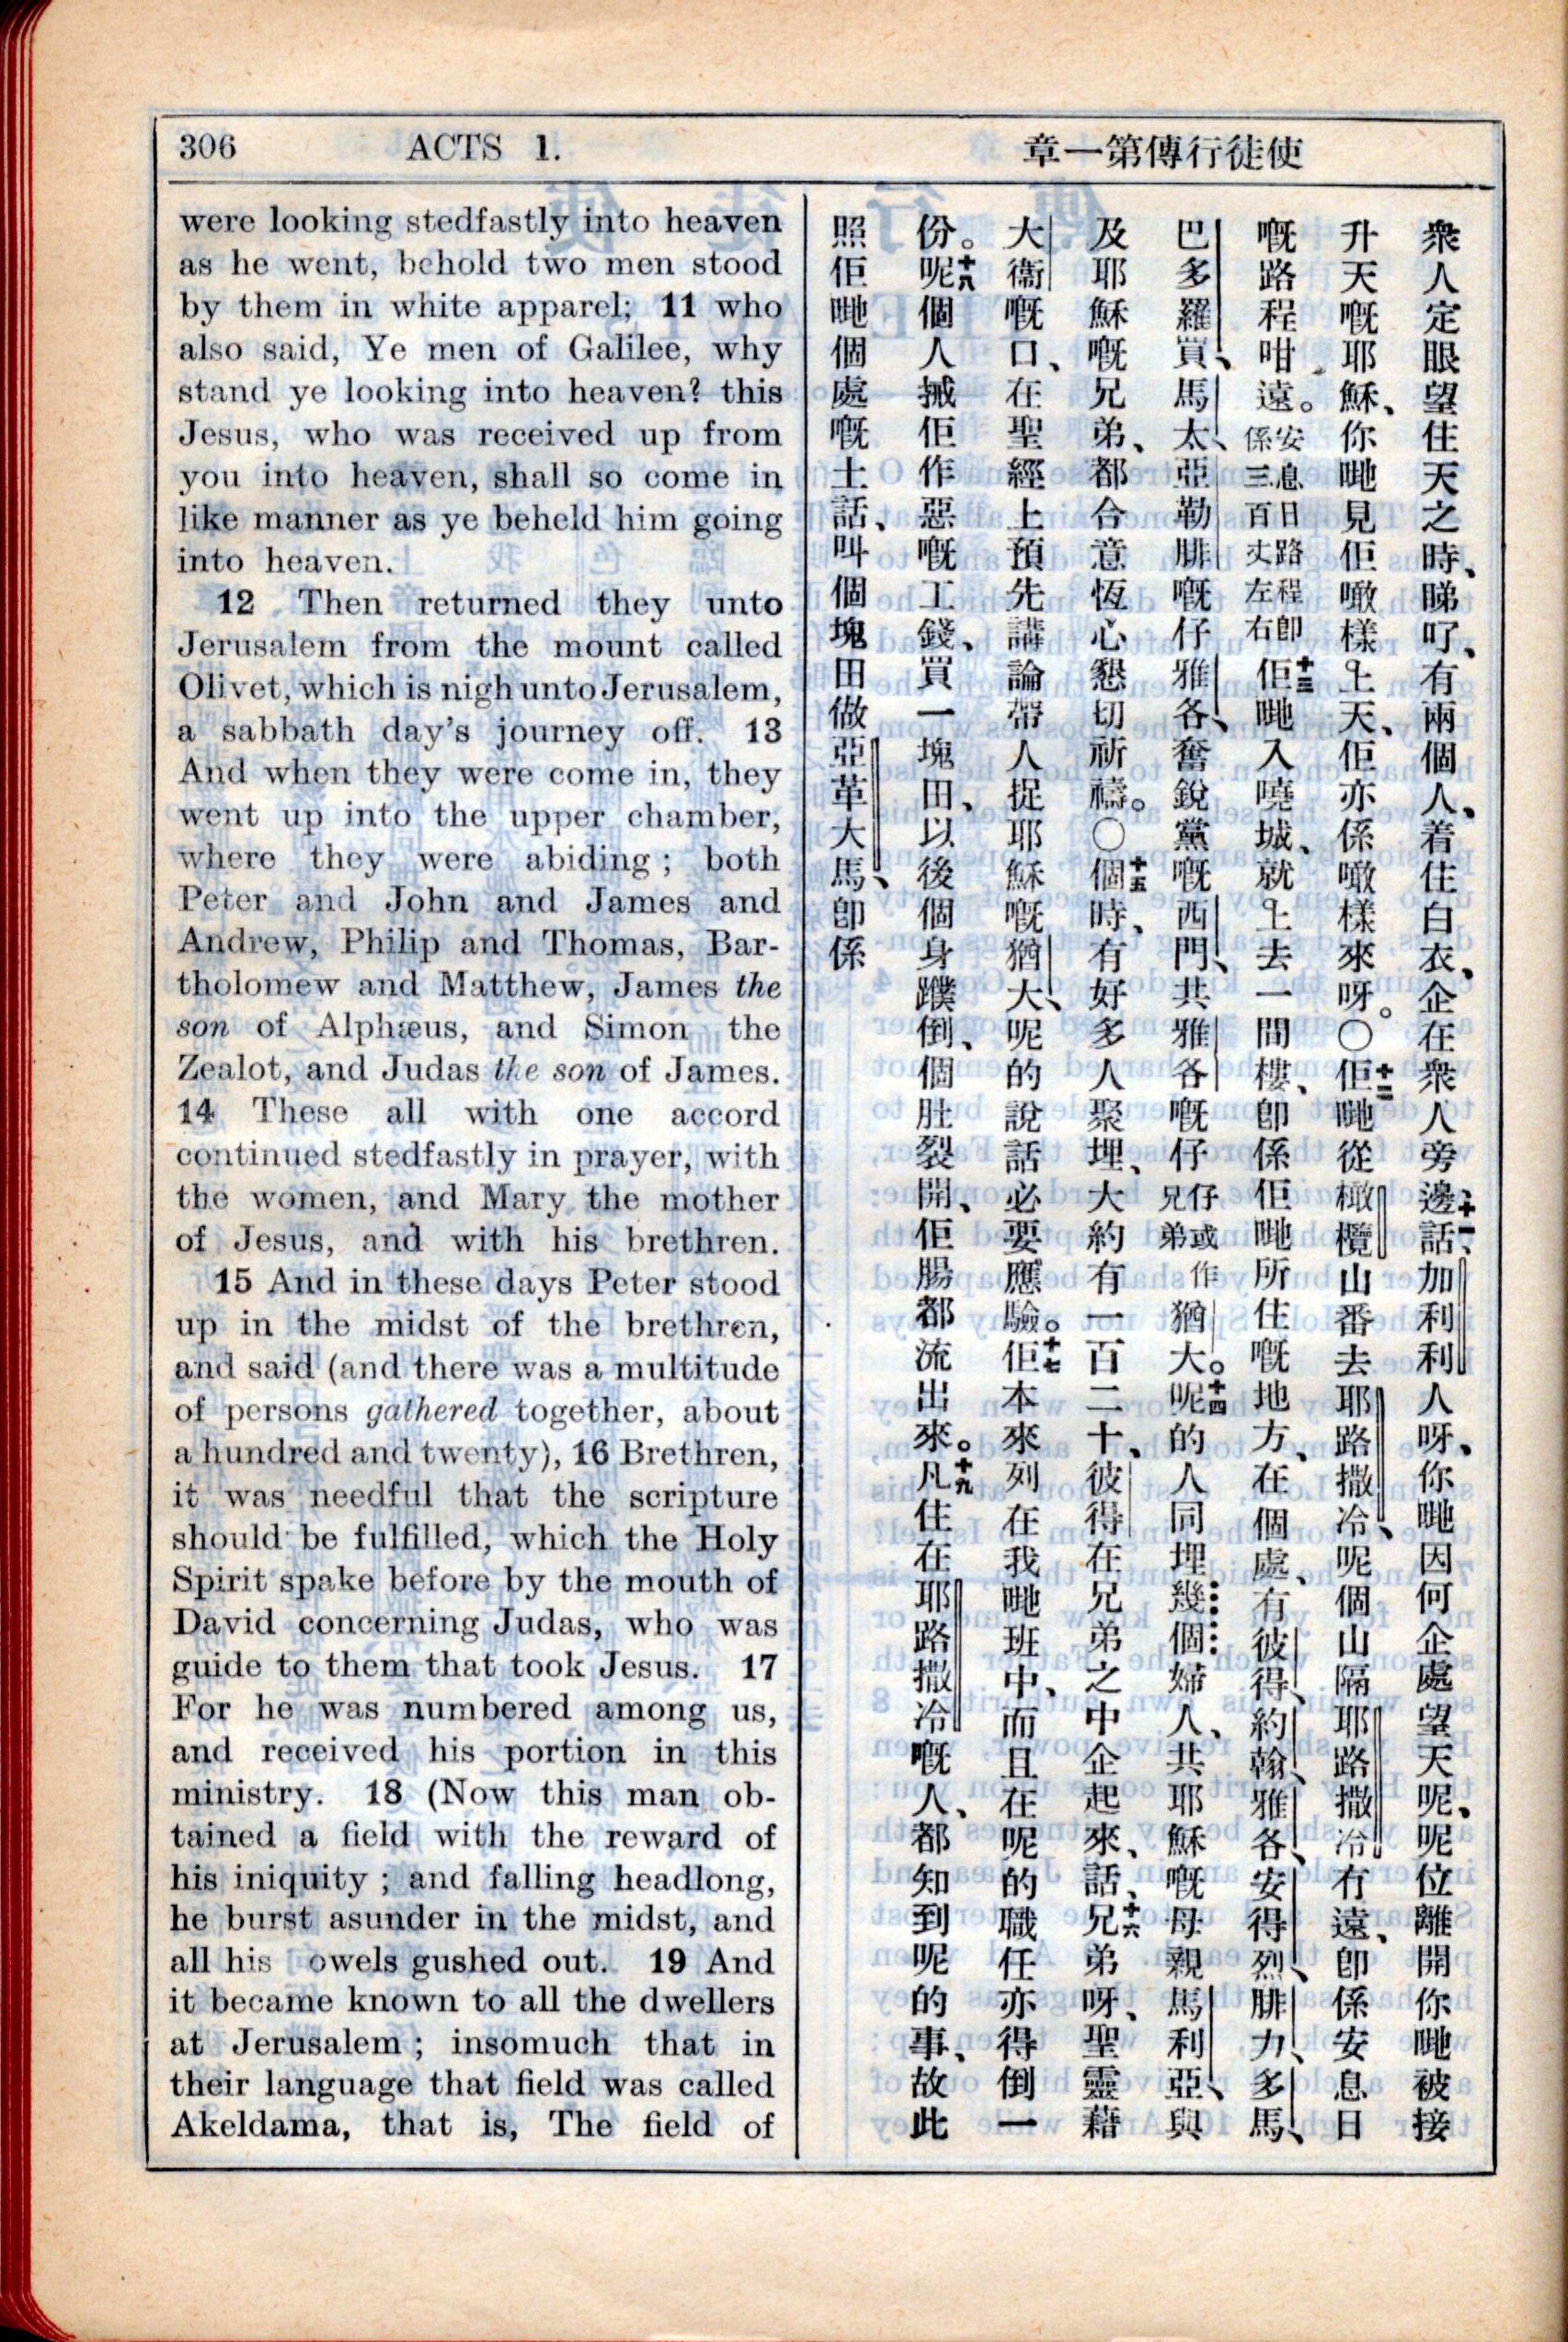 306 ACTS 1.
章一第傳行徒使
were looking stedfastly into heaven
as he went, behold two men stood
by them in white apparel; 11 who
also said, Ye men of Galilee, why
stand ye looking into heaven? this
Jesus, who was received up from
you into heaven, shall so come in
like manner as ye beheld him going
into heaven.
12 Then returned they unto
Jerusalem from the mount called
Olivet, which is nigh unto Jerusalem,
a sabbath day's journey off. 13
And when they were come in, they
went up into the upper chamber,
where they were abiding; both
Peter and John and James and
Andrew, Philip and Thomas, Bar-
tholomew and Matthew, James the
son of Alphæus, and Simon the
Zealot, and Judas the son of James.
14 These all with one accord
continued stedfastly in prayer, with
the women, and Mary the mother
of Jesus, and with his brethren.
15 And in these days Peter stood
up in the midst of the brethren,
and said (and there was a multitude
of persons gathered together, about
a hundred and twenty), 16 Brethren,
it was needful that the scripture
should be fulfilled, which the Holy
Spirit spake before by the mouth of
David concerning Judas, who was
guide to them that took Jesus. 17
For he was numbered among us,
and received his portion in this
ministry. 18 (Now this man ob-
tained a field with the reward of
his iniquity; and falling headlong,
he burst asunder in the midst, and
all his owels gushed out. 19 And
it became known to all the dwellers
at Jerusalem; insomuch that in
their language that field was called
Akeldama, that is, The field of
衆人定眼望住天之時、睇吖、有兩個人、着住白衣、企在衆人旁邊、十一話、加利利人呀、你哋因何企處望天呢、呢位離開你哋被接
升天嘅耶穌、你哋見佢噉樣上天、佢亦係噉樣來呀。〇十二佢哋從橄欖山番去耶路撒冷、呢個山隔耶路撒冷有遠、卽係安息日
嘅路程咁遠。安息日路程卽係三百丈左右十三佢哋入嘵城、就上去一間樓、卽係佢哋所住嘅地方、在個處、有彼得、約翰、雅各、安得烈、腓力、多馬、
巴多羅買、馬太、亞勒腓嘅仔雅各、奮銳黨嘅西門、共雅各嘅仔仔或作兄弟猶大。十四呢的人同埋幾個婦人、共耶穌嘅母親馬利亞、與
及耶穌嘅兄弟、都合意恆心懇切祈禱。〇十五個時、有好多人聚埋、大約有一百二十、彼得在兄弟之中企起來、話、十六兄弟呀、聖靈藉
大衞嘅口、在聖經上預先講論帶人捉耶穌嘅猶大、呢的說話必要應驗。十七佢本來列在我哋班中、而且在呢的職任亦得倒一
份。十八呢個人搣佢作惡嘅工錢、買一塊田、以後個身蹼倒、個肚裂開、佢腸都流出來。十九凡住在耶路撒冷嘅人、都知到呢的事、故此
照佢哋個處嘅土話、叫個塊田做亞革大馬、卽係